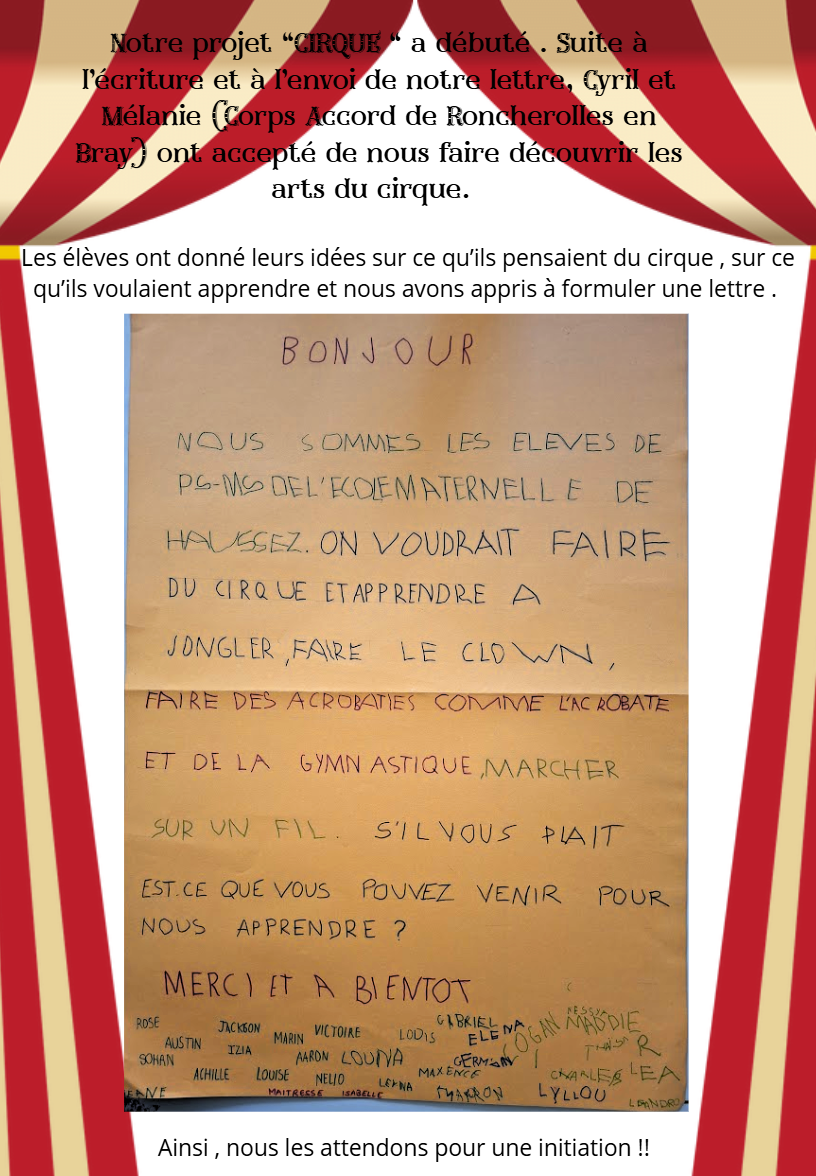 Notre projet “CIRQUE “ a débuté . Suite à
l'écriture et à l'envoi de notre lettre, Cyril et
Mélanie (Corps Accord de Roncherolles en
Bray) ont accepté de nous faire découvrir les
arts du cirque.
Les élèves ont donné leurs idées sur ce qu’ils pensaient du cirque , sur ce
qu’ils voulaient apprendre et nous avons appris à formuler une lettre .
BONJOUR
NOUS SOMMES LES ELEVES DE
PS-MS DE L'ECOLE MATERNELLE DE
HAUSSEZ. ON VOUDRAIT FAIRE
DU CIRQUE ET APPRENDRE A
JONGLER, FAIRE LE CLOWN,
FAIRE DES ACROBATIES COMME L'ACROBATE
ET DE LA GYMNASTIQUE, MARCHER
SUR UN FIL. S'IL VOUS PLAIT
EST.CE QUE VOUS POUVEZ VENIR POUR
NOUS APPRENDRE ?
MERCI ET A BIENTOT
ROSE JACKSON VICTOIRE LOUIS GABRIEL ELENA LOGAN JESSY MADDIE
AUSTIN IZIA MARIN
SOHAN AARON LOUNA GERMAIN
ACHILLE LOUISE NELIO LEYNA MAXENCE CHARLES LEA
MAITRESSE ISABELLE SHARRON LYLLOU LEANDRO
Ainsi , nous les attendons pour une initiation !!